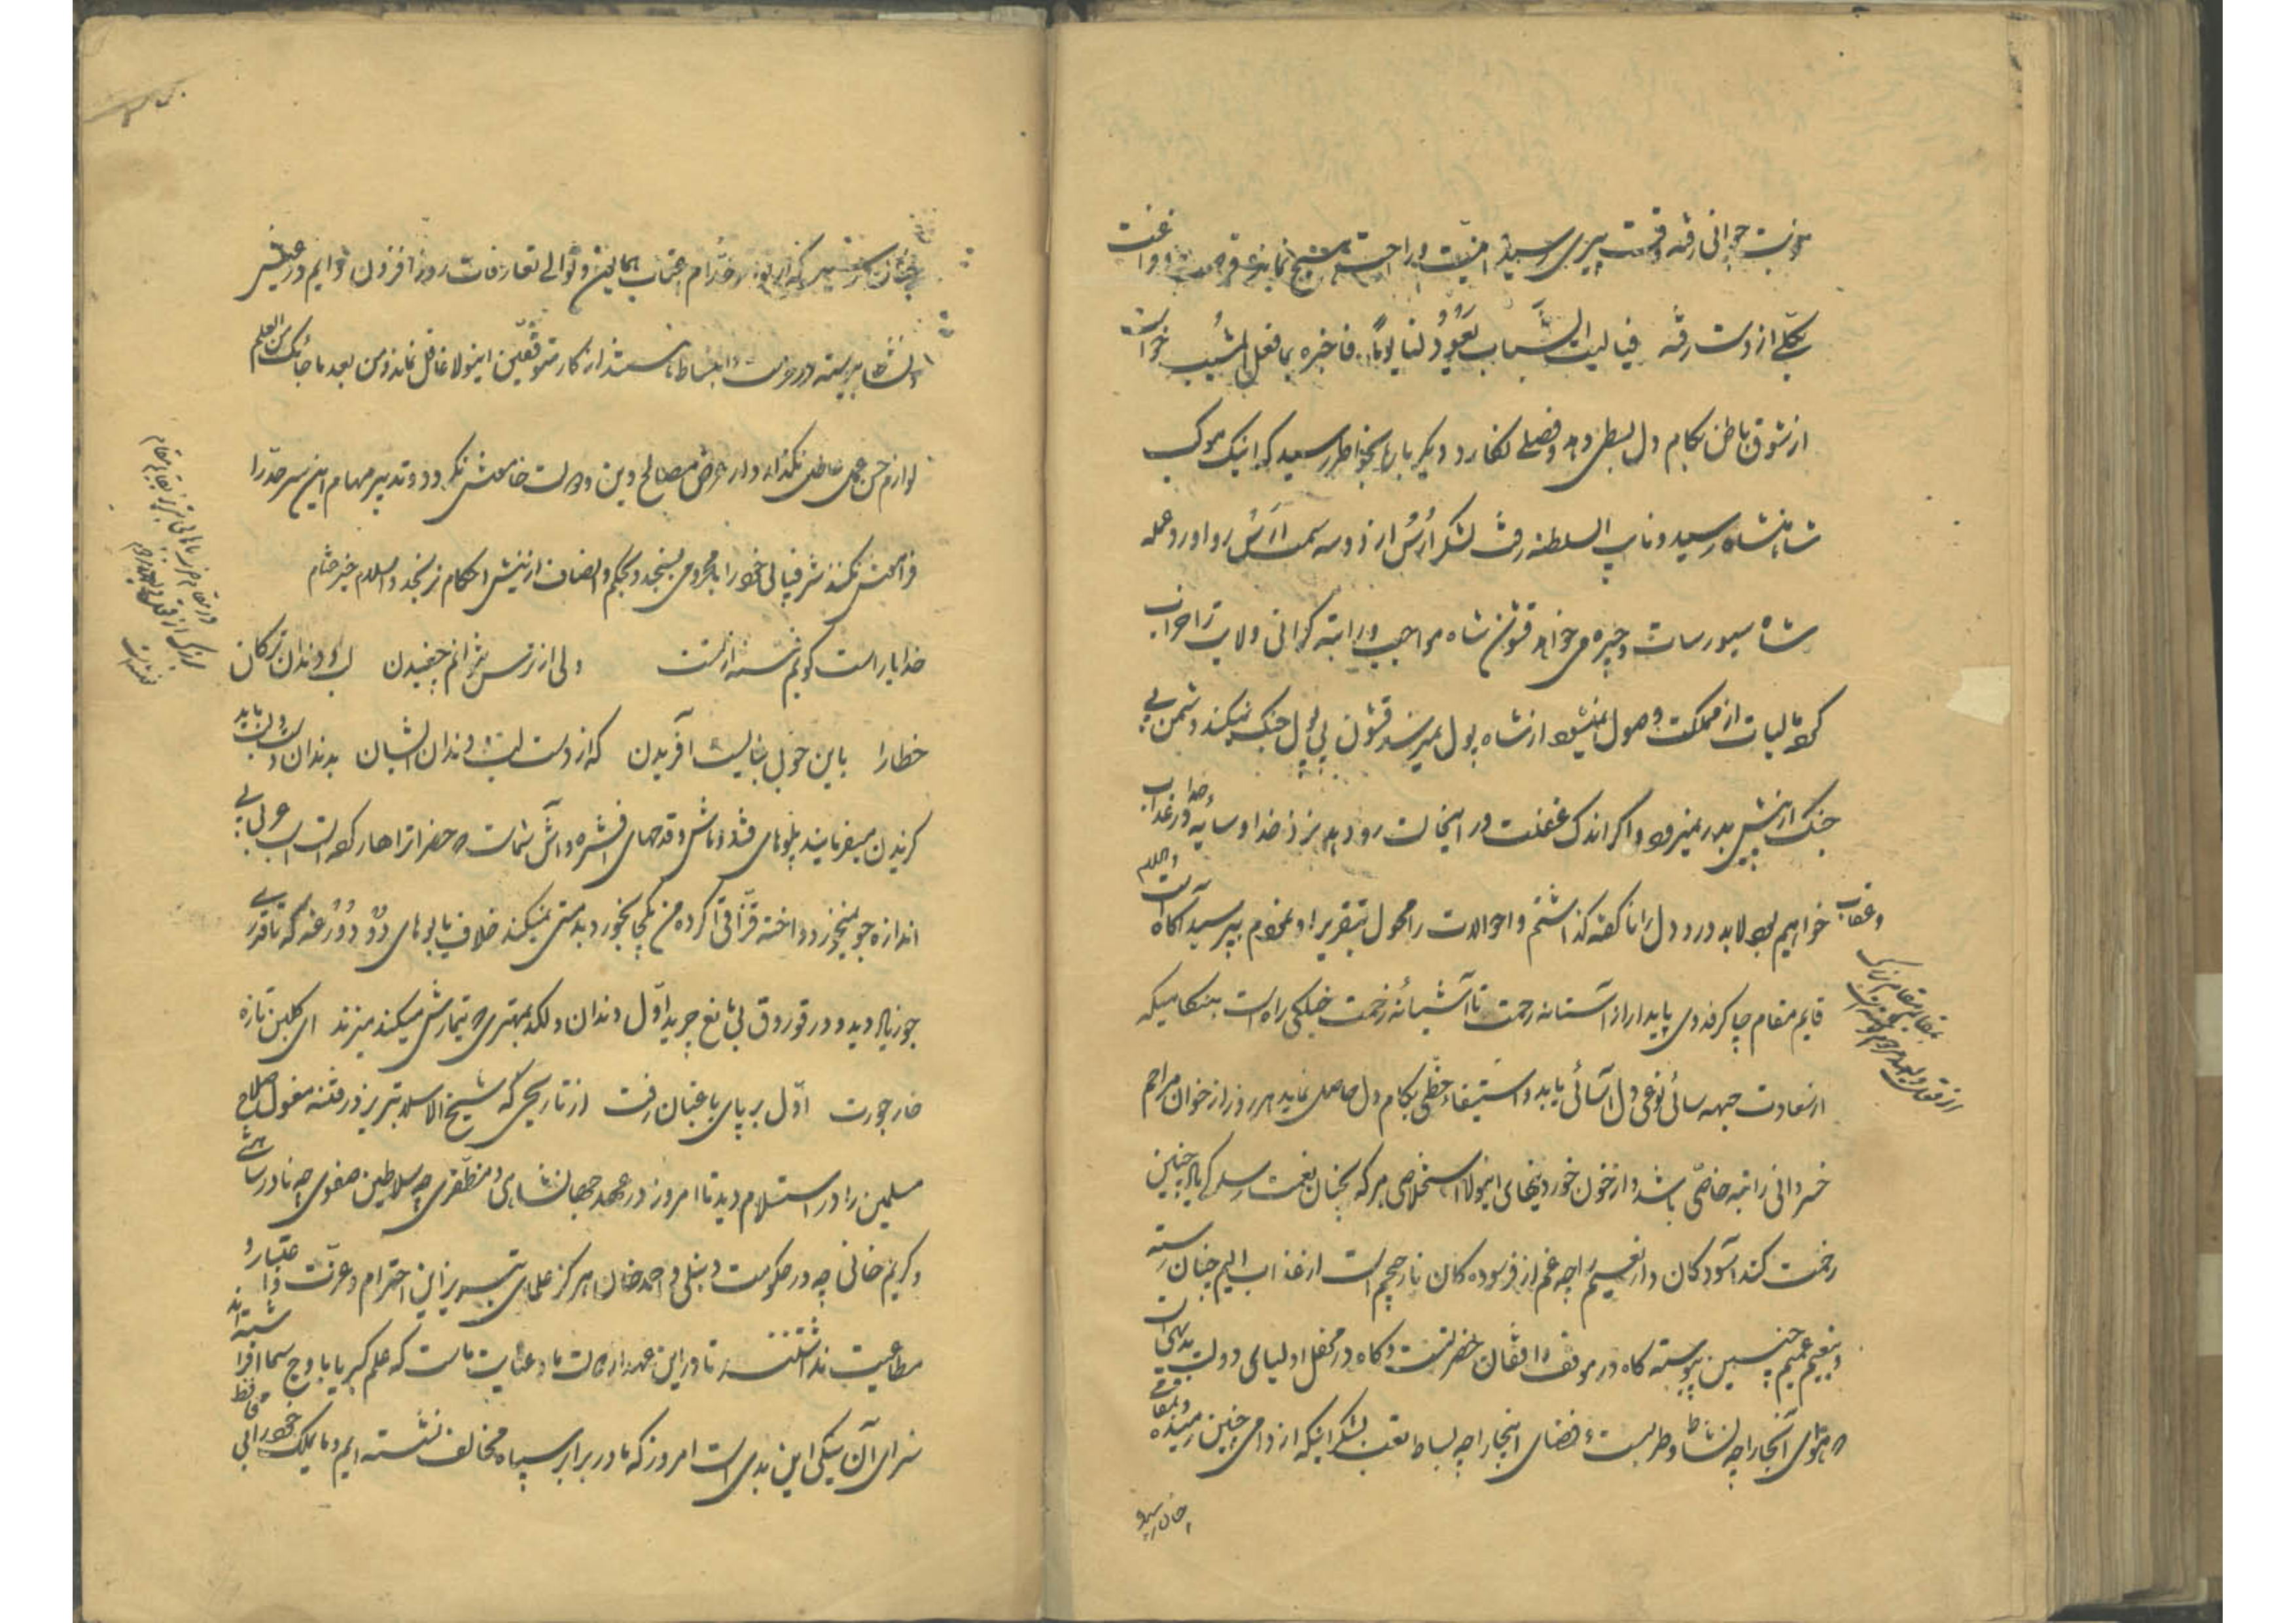 نوبت جوانی رفته وقت پیری رسیده امنیت و راحت نمانده و فراغت
بکلی از دست رفته فیالیت الشباب یعود لنا یوماً فاخبره بما فعل المشیب خواست
از شوق باطن بکام دل بسطی دهد و فصلی نگارد دیگر باره بخاطر رسید که اینک موکب
شاهنشاه رسید و نایب السلطنه رفت لشکر اُرُس از دو سه سمت اَرَس رو آورد عمله
شاه سیورسات و جیره می‌خواهد قشون شاه مواجب و راتبه گرانی ولایت را خراب
کرده مالیات از مملکت وصول نمیشود از شاه پول نمیرسد قشون بی پول جنگ نمیکند دشمن بی
جنگ از پیش بدر نمیرود و اگر اندک غفلت در اینحالت رو دهد نزد خدا و سایهٔ خدا در عذاب
و عقاب خواهیم بود لابد درد دل را ناگفته گذاشتم و احوالات را محول بتقریر او نمودم بپرسید آگاه است والسلام
بمقام بزرگ
قایم مقام
از قول ولیعهد مرحوم نوشته است
قایم مقام چاکر فدوی پایدار از آستانه رحمت تا آشیانهٔ زحمت خیلکی راه است هنگامیکه
از سعادت جبهه سائی نوعی دل آسائی یابد و استیفاء حظی بکام دل حاصل نماید هر روز از خوان مراحم
خسروانی راتبه خاصی باشد و از خون خوردنهای اینولا استخلاصی هر که بچنان نعمت رسد کی یاد چنین
زحمت کند آسودگان دار نعیم را چه غم از فرسوده گان نار جحیم است از عذاب الیم چنان رسته
و بنعیم عمیم چنین پیوسته گاه در موقف واقفان حضرتست و گاه در محفل اولیای دولت بدیهی است
که هوای آنجا را چه نشاط و طربست و فضای اینجا را چه بساط تعب بشکر اینکه از دامی چنین رمیده و بمقامی
چنان رسیده
چنان رسیده که از خدام اعتاب همایون و توالی تعارفات روز افزون دایم در عیش
و نشاط پیوسته در عزت و انبساط باشند از کار متوقفین اینولا غافل نماند و من بعد ما جائک من العلم
لوازم حسن عمل عاطل نگذارد و از عرض مصالح دین و دولت خامش نگردد و تدبیر مهام این سرحد را
فرامش نکند شرفیابی خود را با محرومی بسنجد و بحکم انصاف از نیش احکام نرنجد والسلام خیر ختام
در مقام
از قول ولیعهد
خدایا راست گویم فتنه از تست ولی از ترس نتوانم چغیدن لب و دندان ترکان
خطا را باین خوبی نبایست آفریدن که از دست لب و دندان ایشان بدندان دست و لب باید
گزیدن میفرمایند پلوهای قند و ماش و قدحهای افشره و آش شماست که حضرات را هار کرده است اسب عربی بی
اندازه جو نمیخورد و اخته قزاقی اگر ده من یکجا بخورد بدمستی نمیکند خلاف یابوهای دو دورغه که تا قدری
جو زیاد دید و در قوروق بی مانع چرید اول دندان و لگد بمهتری که تیمارش میکند میزند ای گلبن تازه
خار جورت اول بر پای باغبان رفت از تاریخی که شیخ الاسلام تبریز در فتنه مغول صلاح
مسلمین را در استسلام دید تا امروز در عهد جهانشاهی و مظفری چه سلاطین صفوی چه نادرشاهی
و کریم خانی چه در حکومت دنبلی و احمدخان هرگز علمای تبریز این احترام و عزت و اعتبار و
مطاعیت نداشتند تا در این عهد از دولت ما و عنایت ماست که علم کبریا باوج سما افراشته‌اند
سزای آن نیکی این بدی است امروز که ما در برابر سپاه مخالف نشسته ایم و ما یملک خود را بی محافظ